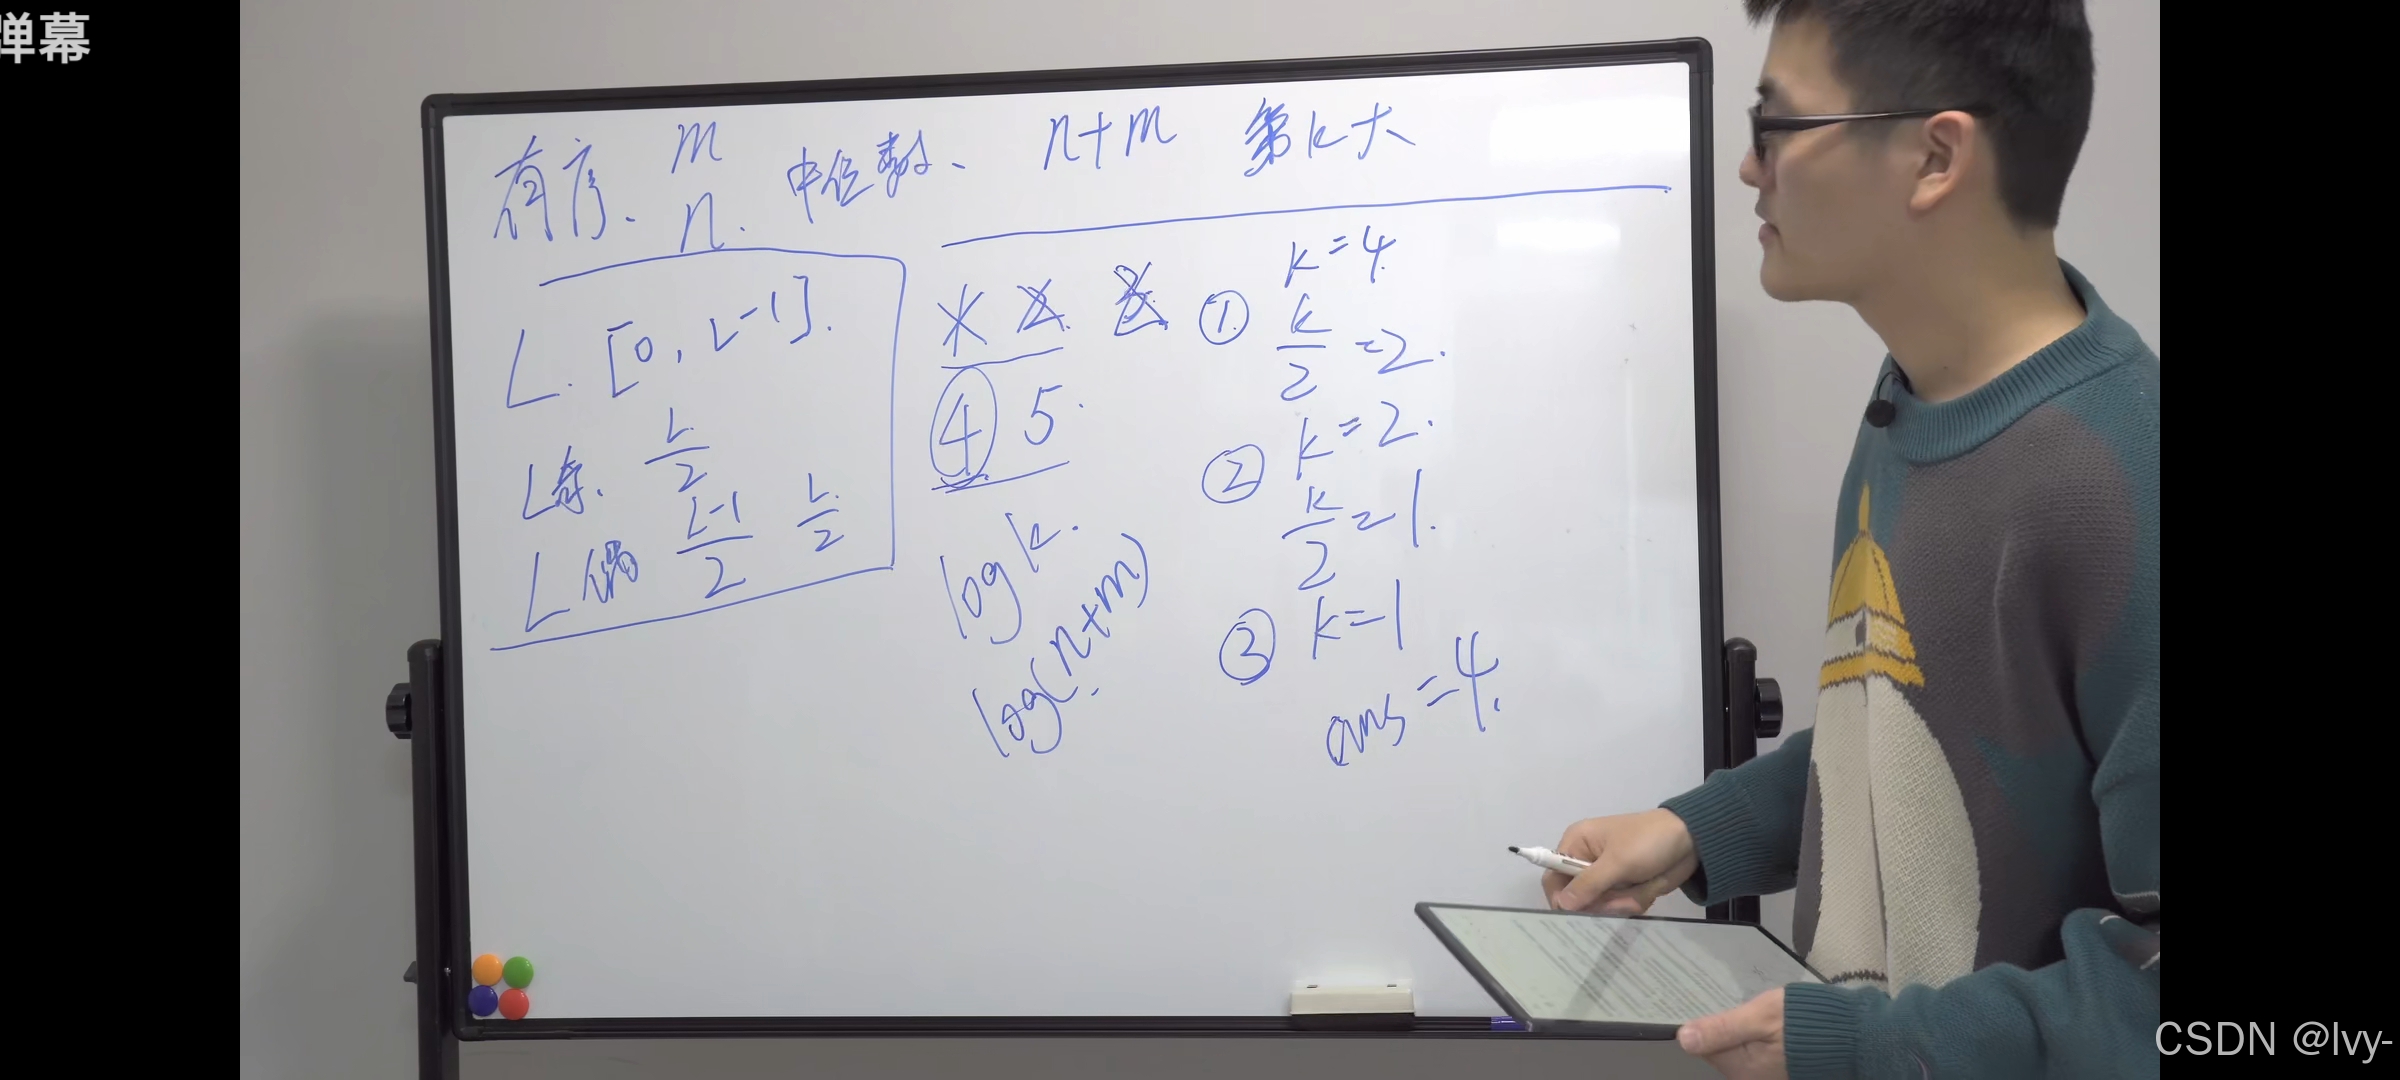 弹幕
有序、 m n. 中位数、 n+m 第k大
L. [0, L-1].
L奇. L/2
L偶 L-1/2 L/2
1 2. 3.
④ 5.
log k.
log(n+m)
k=4.
① k/2 = 2.
② k=2.
k/2 = 1.
③ k=1
ans=4.
CSDN @lvy-